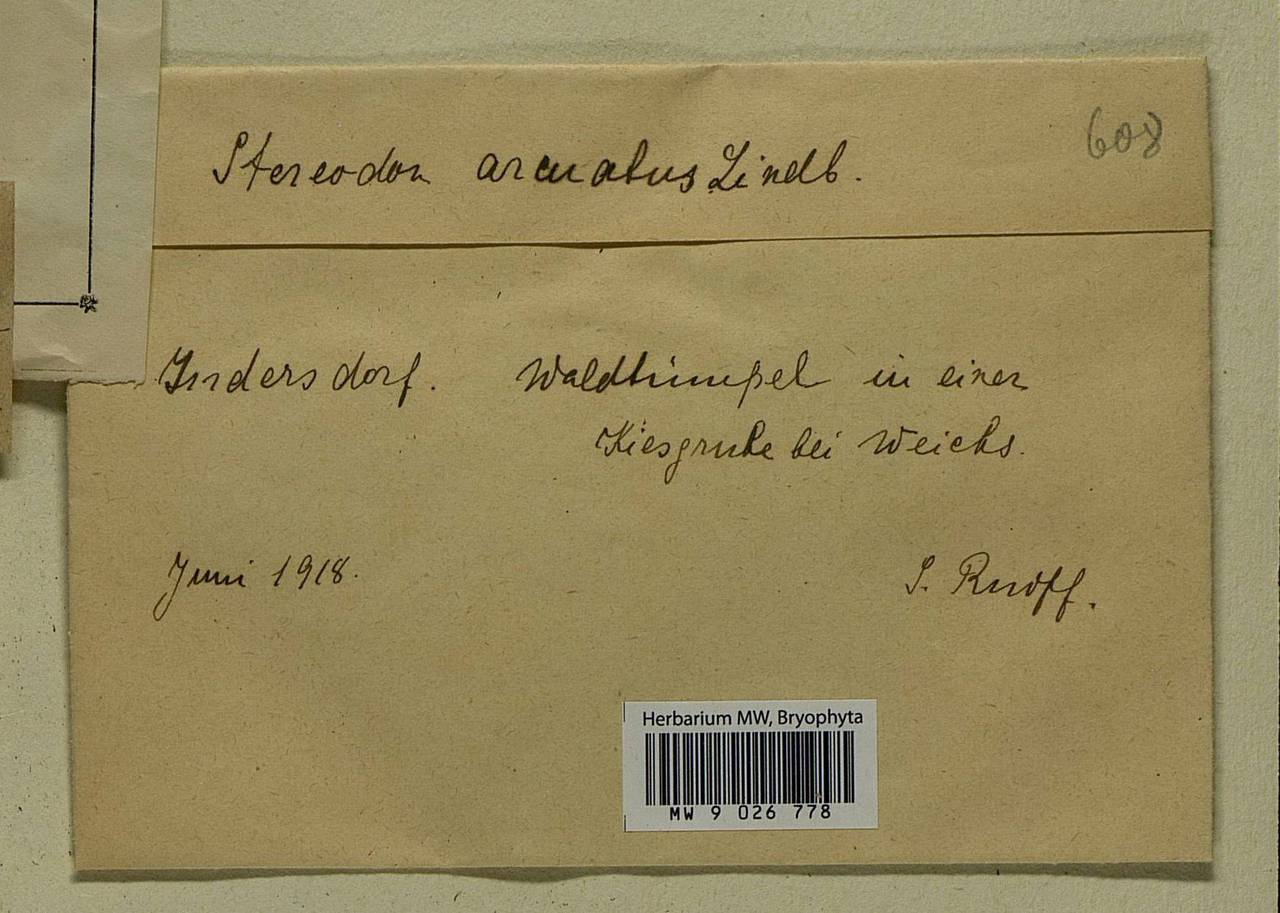 608
Stereodon arcuatus Lindb.
Indersdorf. Waldtümpel in einer
Kiesgrube bei Weichs.
Juni 1918. S. Ruoff.
Herbarium MW, Bryophyta
MW 9 026 778